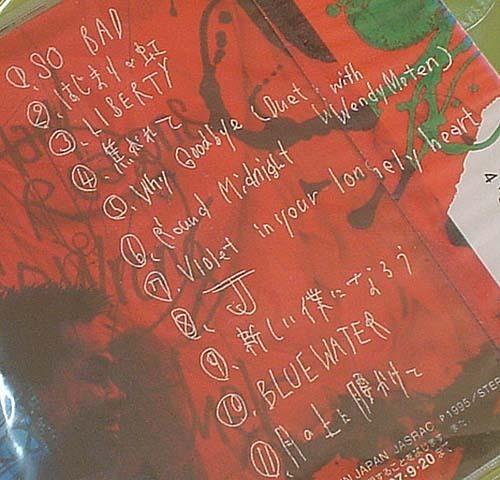 ①. SO BAD
②. はじまりの虹
③. LIBERTY
④. 焦がれて
⑤. Why Goodbye (Duet : with WendyMoten)
⑥. 'Round Midnight
⑦. Violet in your lonely heart
⑧. J
⑨. 新しい僕になろう
⑩. BLUE WATER
⑪. 月の上に腰かけて
JAPAN JASRAC ℗1995/STE
7・9・20まで
4